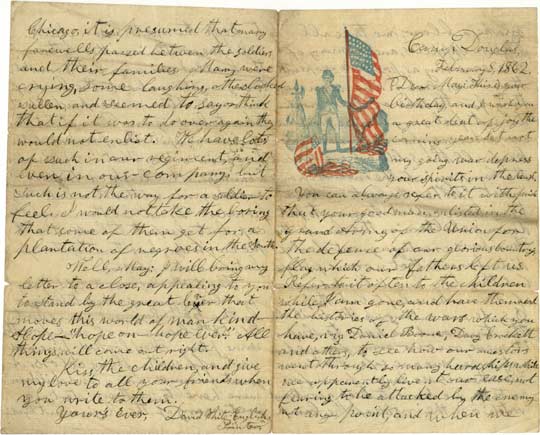 Camp Douglas,
February 8, 1862.
Dear May: This is your
birthday, and I wish you
a great deal of joy the
coming year. Let not
my going war depress
your spirits in the least.
You can always refer to it with pride
that your good man enlisted in the
grand Army of the Union for
the defense of our glorious country's
flag which our Fathers left us.
Refer to it often to the children
while I am gone, and have them read
the histories of the wars which you
have, viz Daniel Boone, Davy Crockett
and others, to see how our ancestors
went through so many hardships while
we apparently live at our ease, not
fearing to be attacked by the enemy
at any point, and when we
Chicago, it is presumed that many
farewells passed between the soldiers
and their families. Many were
crying, some laughing, others looked
sullen, and seemed to say or think
that if it was to do over again they
would not enlist. We have lots
of such in our regiment, and
even in our company; but
such is not the way for a soldier to
feel. I would not take the
that some of them get for a
plantation of negroes in the South.
Well, May: I will bring my
letter to a close, appealing to you
to stand by the great that
moves this world of man kind
Hope - "hope on - hope ever." All
things will come out right.
Kiss the children, and give
my love to all your friends when
you write to them.
Yours Ever, David White English
Printer